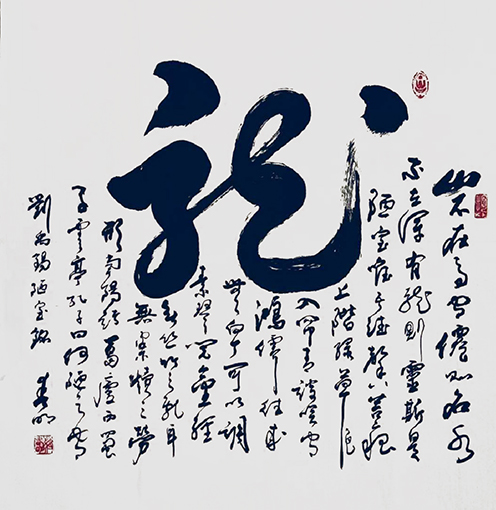 龍
山不在高有僊則名水
不在深有龍則靈斯是
陋室惟吾德馨苔痕
上階綠草色
入簾青談笑有
鴻儒往來
無白丁可以調
素琴閱金經
無絲竹之亂耳
無案牘之勞
形南陽諸葛廬西蜀
子雲亭孔子曰何陋之有
劉禹錫陋室銘